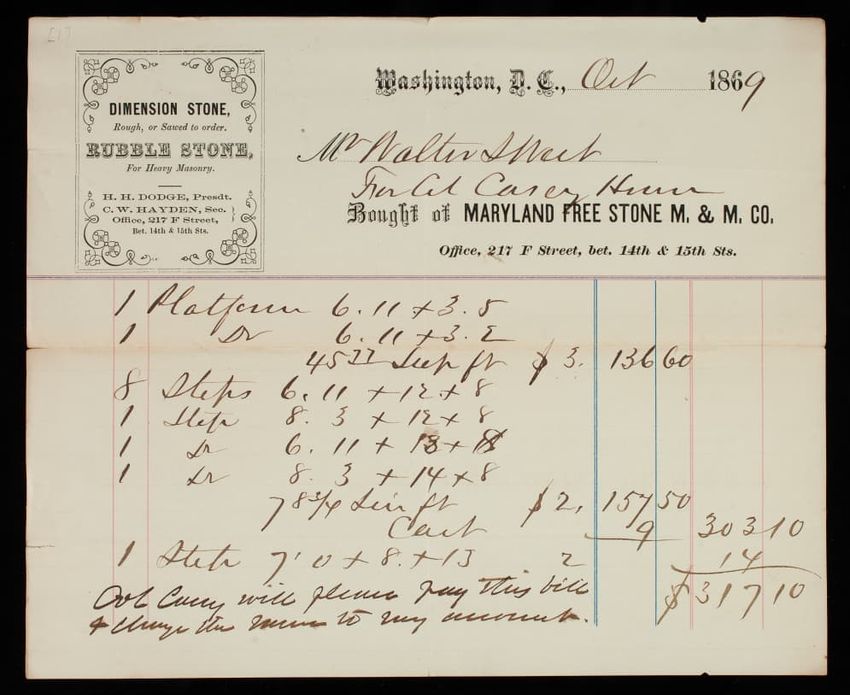 DIMENSION STONE,
Rough, or Sawed to order.
RUBBLE STONE,
For Heavy Masonry.
H. H. DODGE, Presdt.
C. W. HAYDEN, Sec.
Office, 217 F Street,
Bet. 14th & 15th Sts.
Washington, D. C., Oct 1869
Mr Walter
For Col Casey
Bought of MARYLAND FREE STONE M. & M. CO.
Office, 217 F Street, bet. 14th & 15th Sts.
1 Platform 6.11 + 3.5
1 Do 6.11 + 3.2
45 Sup ft $3. 136 60
8 Steps 6.11 + 12 + 8
1 Step 8.3 + 12 + 8
1 Do 6.11 +
1 Do 8.3 + 14 + 8
78 3/4 Lin ft $2, 157 50
Cart 9 303 10
1 Step 7'0 + 8. + 13 2 14
$317 10
Col Casey will please pay this bill
& charge the same to my account.